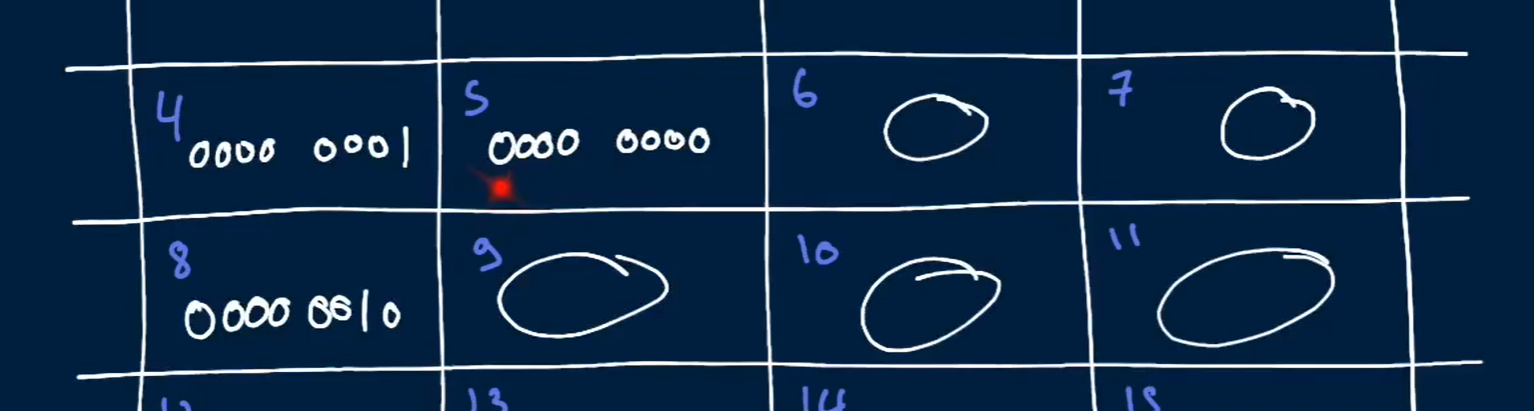 4 0000 0001
5 0000 0000
6
7
8 0000 0010
9
10
11
13
14
15